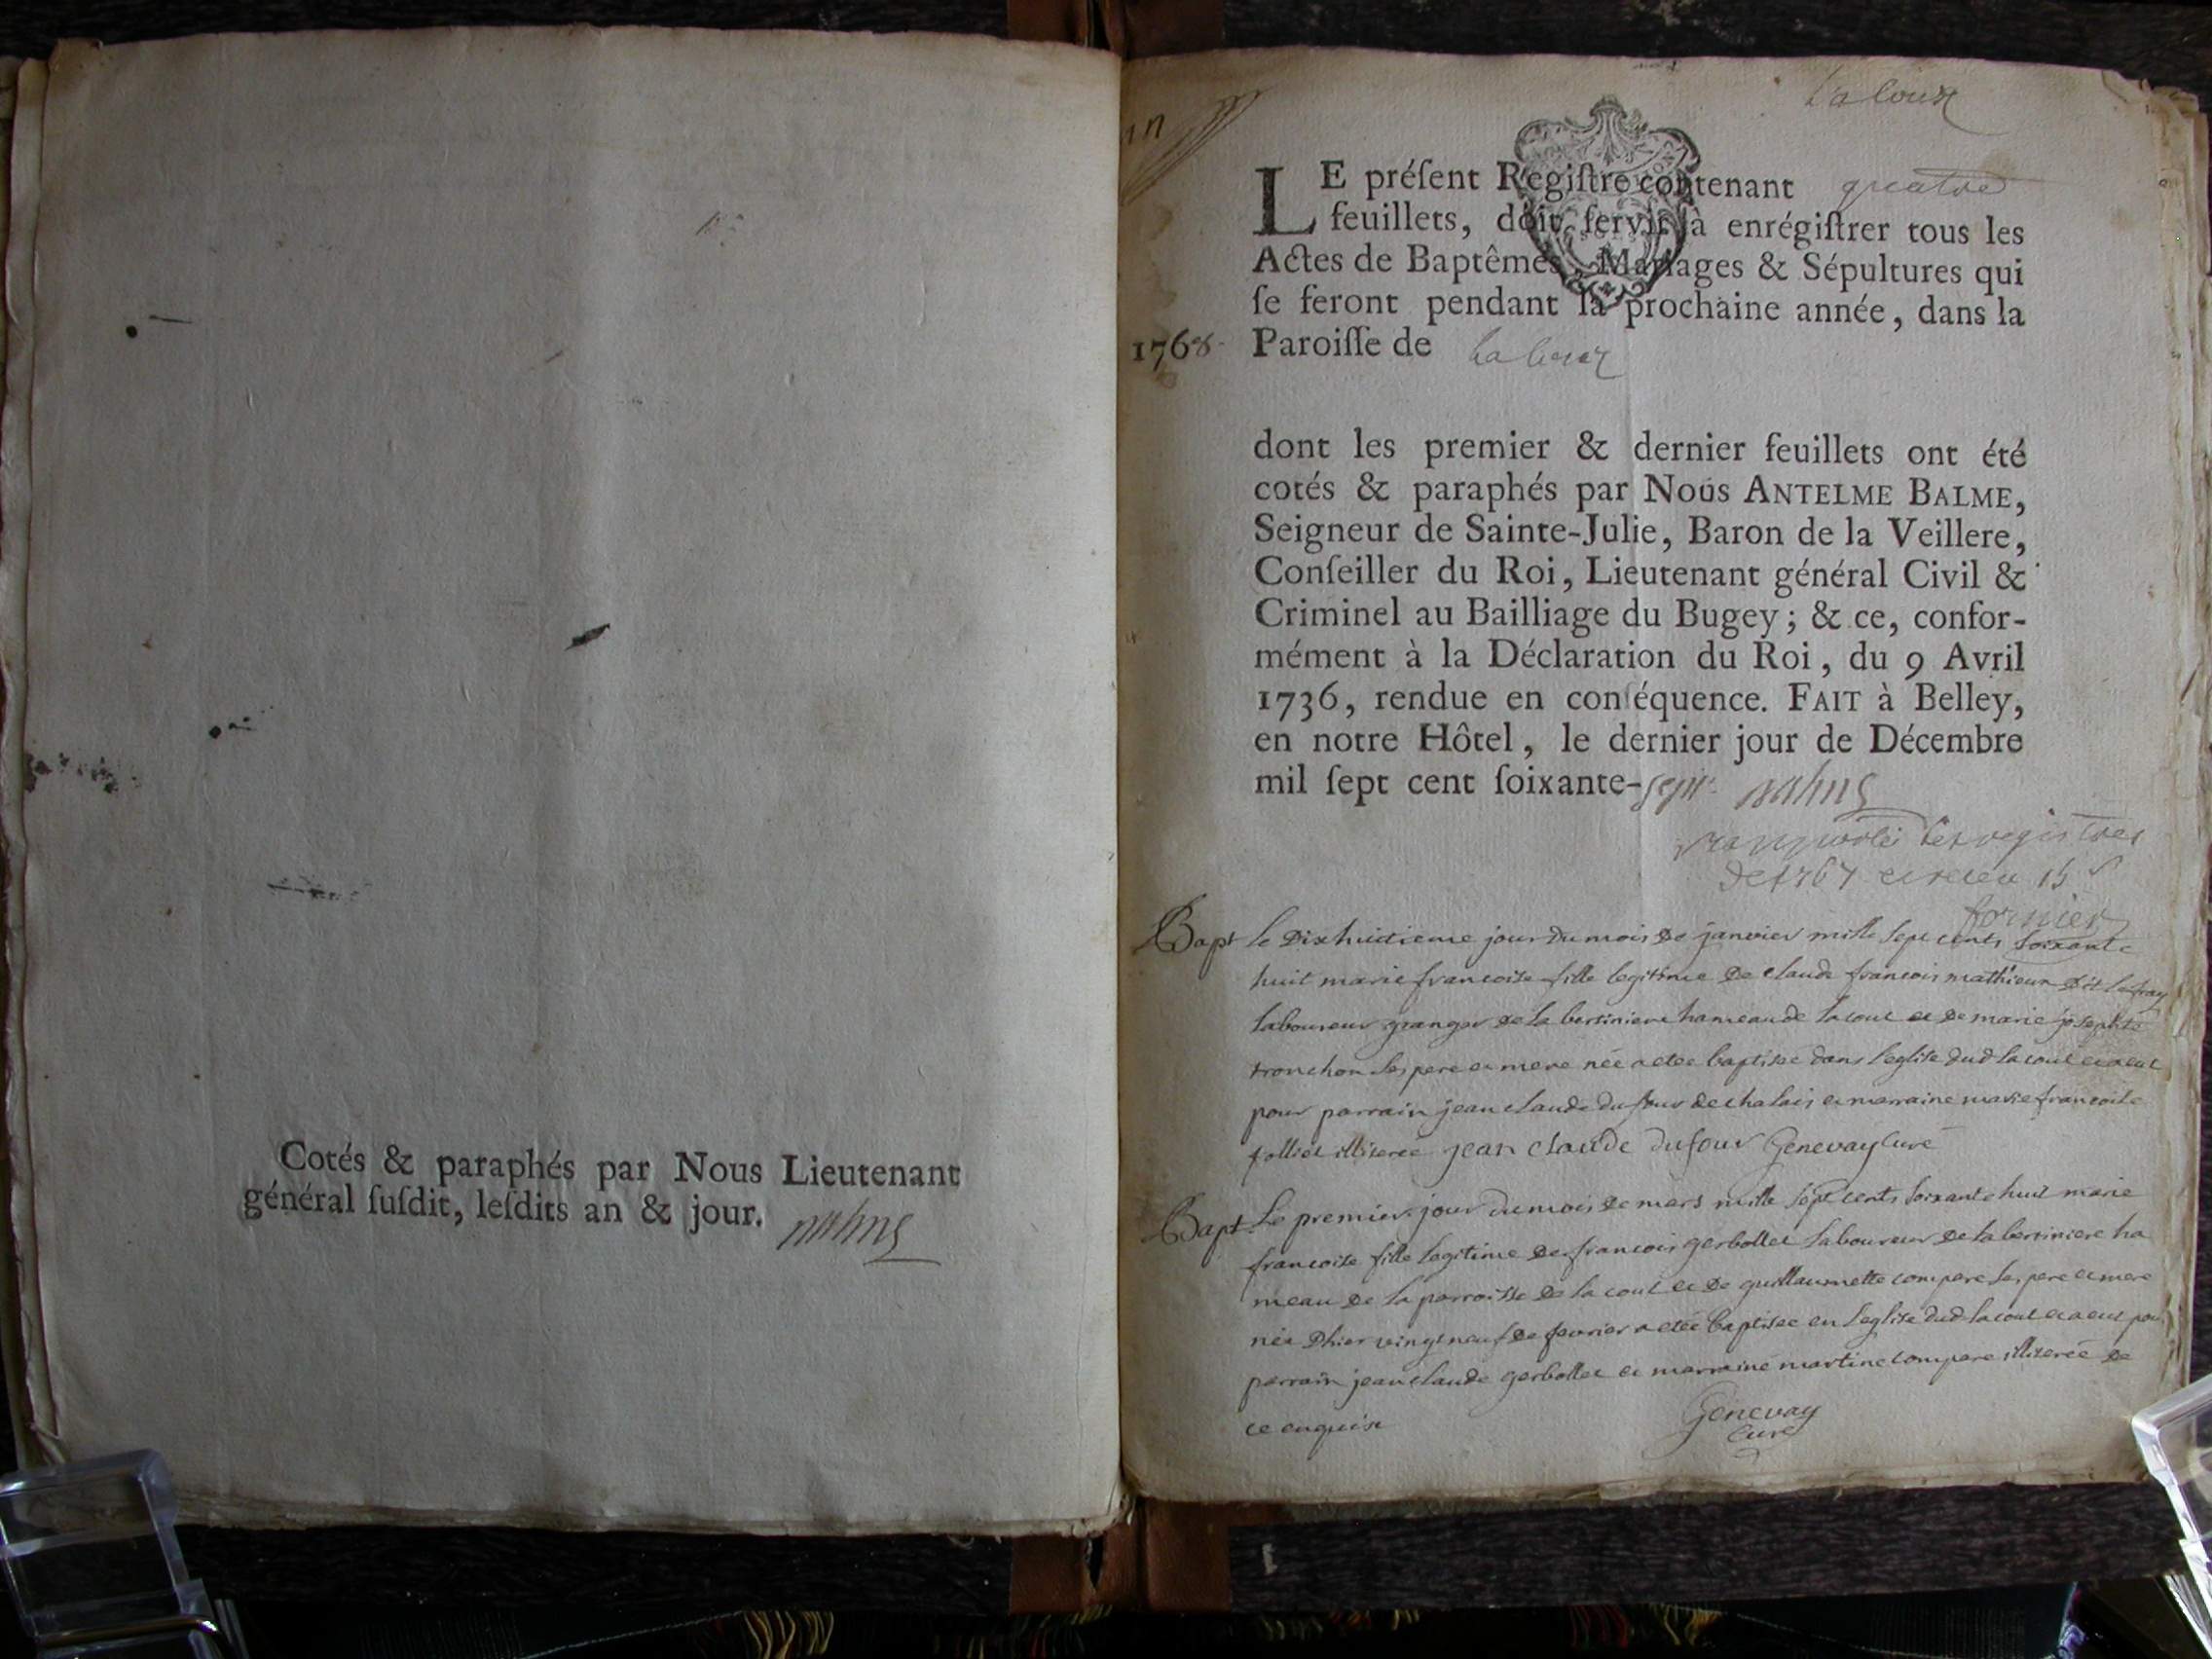 Cotés & paraphés par Nous Lieutenant
général ſuſdit, leſdits an & jour.
LE préſent Regiſtre contenant quatre
feuillets, doit ſervir à enrégiſtrer tous les
Actes de Baptêmes, Mariages & Sépultures qui
ſe feront pendant la prochaine année, dans la
1768 Paroiſſe de
dont les premier & dernier feuillets ont été
cotés & paraphés par Nous ANTELME BALME,
Seigneur de Sainte-Julie, Baron de la Veillere,
Conſeiller du Roi, Lieutenant général Civil &
Criminel au Bailliage du Bugey; & ce, confor-
mément à la Déclaration du Roi, du 9 Avril
1736, rendue en conſéquence. FAIT à Belley,
en notre Hôtel, le dernier jour de Décembre
mil ſept cent ſoixante-sept
les registres
de 1767
fornier
Bapt le dixhuitieme jour du mois de janvier mille sept cents soixante
huit marie francoise fille legitime de claude francois mathieu dit
laboureur granger de la bertiniere hameau de lacout et de marie josephte
tronchon ses pere et mere née a etee baptisee dans l'eglise dud lacout et a eut
pour parrain jean claude dufour de chalais et marraine marie francoise
folliet illiteree jean claude dufour Genevay curé
Bapt Le premier jour du mois de mars mille sept cents soixante huit marie
francoise fille legitime de francois gerbollet laboureur de la bertiniere ha
meau de la parroisse de lacout et de guillaumette compare ses pere et mere
née dhier vingt neuf de fevrier a etée baptisee en l'eglise dud lacout et a eut pour
parrain jean claude gerbollet et marraine martine compare illiteree de
ce enquise Genevay
curé